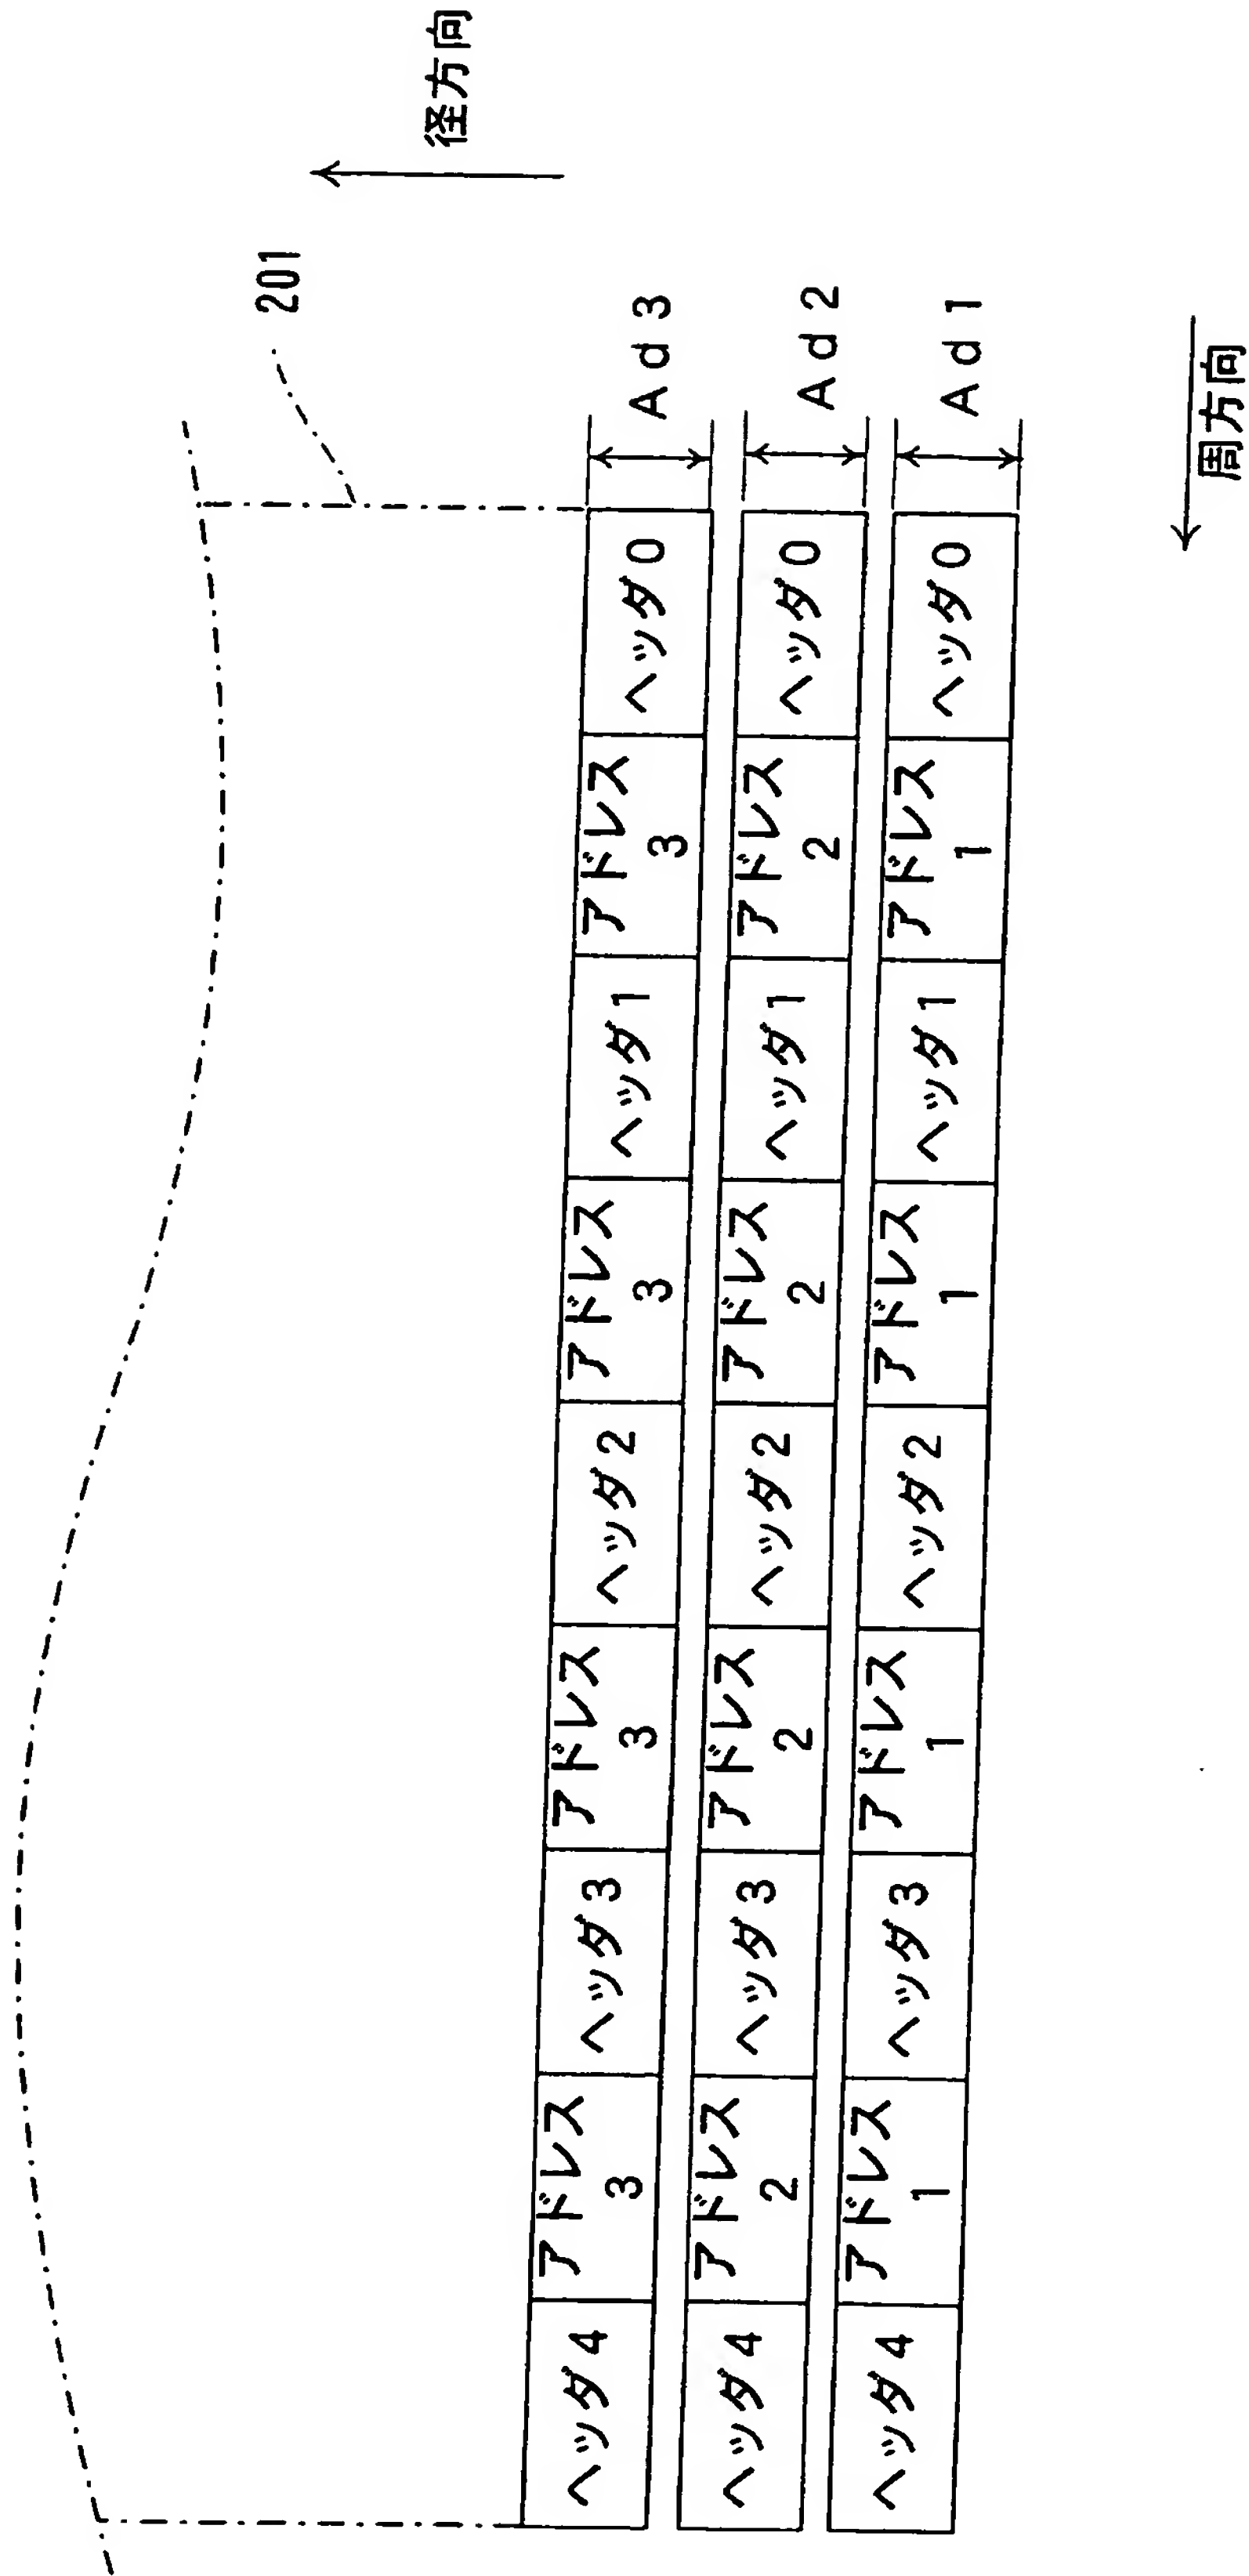 201
径方向
ヘッダ4
アドレス
3
ヘッダ3
アドレス
3
ヘッダ2
アドレス
3
ヘッダ1
アドレス
3
ヘッダ0
Ad3
ヘッダ4
アドレス
2
ヘッダ3
アドレス
2
ヘッダ2
アドレス
2
ヘッダ1
アドレス
2
ヘッダ0
Ad2
ヘッダ4
アドレス
1
ヘッダ3
アドレス
1
ヘッダ2
アドレス
1
ヘッダ1
アドレス
1
ヘッダ0
Ad1
周方向